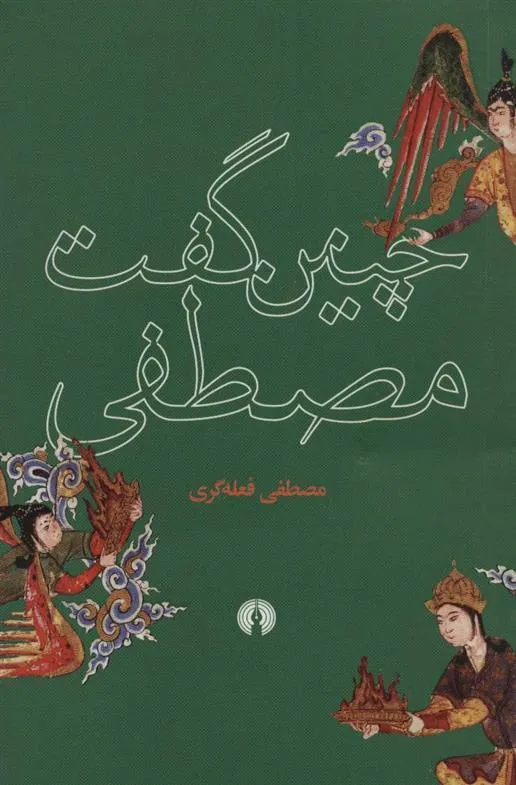 چنین گفت
مصطفی
مصطفی فعله‌گری